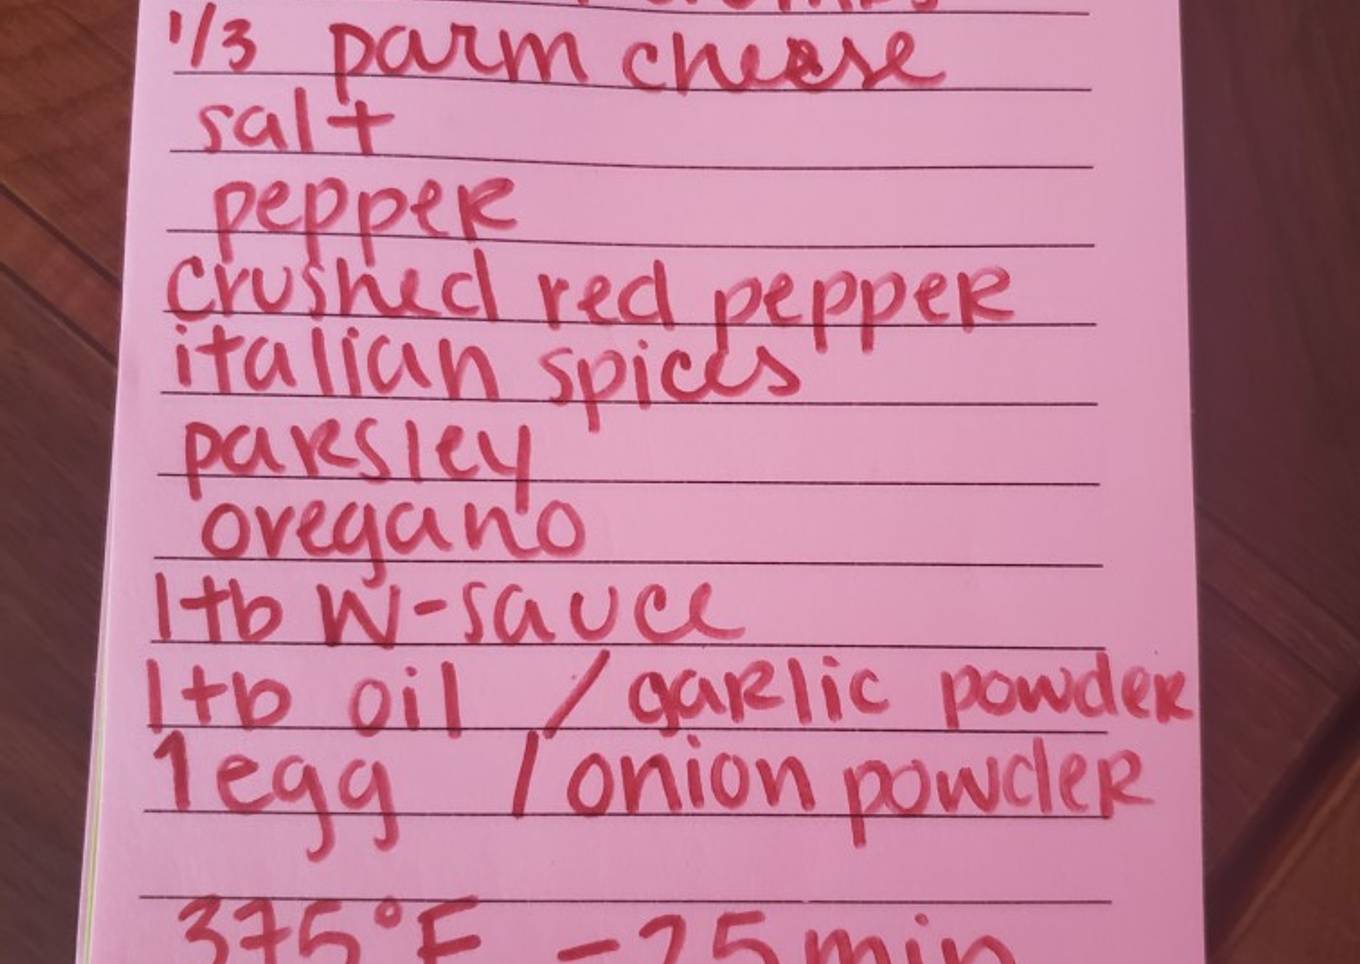 1/3 parm cheese
salt
pepper
crushed red pepper
italian spices
parsley
oregano
1tb W-sauce
1tb oil / garlic powder
1 egg / onion powder
375°F - 25 min